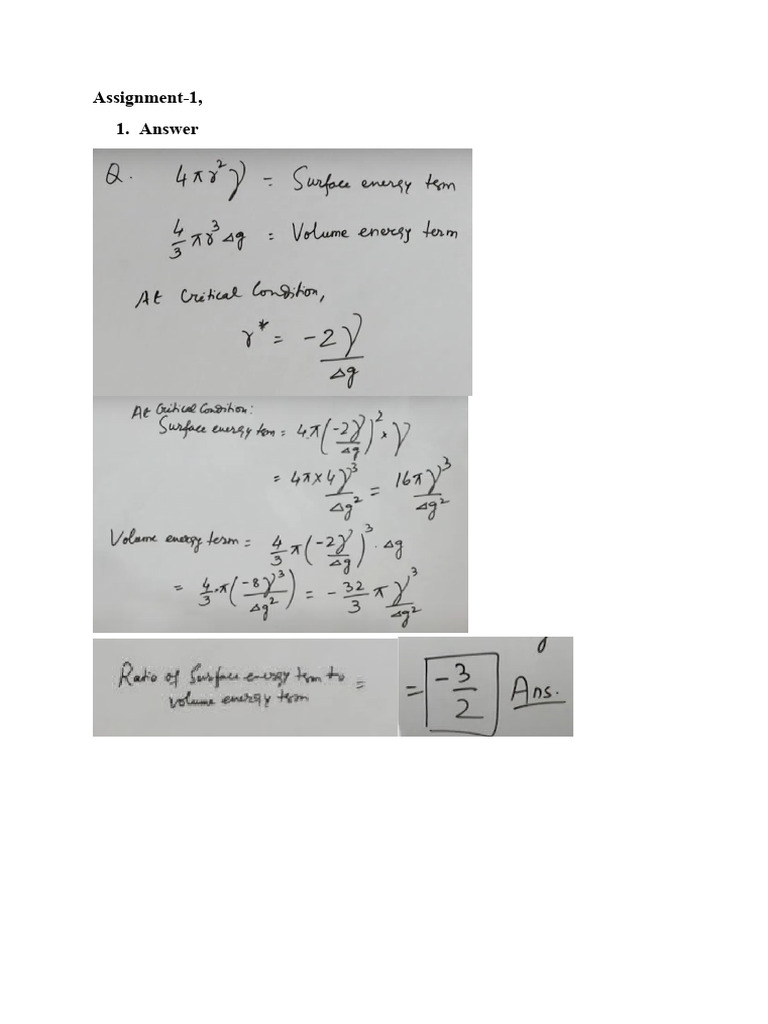 Assignment-1,
1. Answer
Q. 4πr²γ = Surface energy term
4/3 πr³ Δg = Volume energy term
At Critical Condition,
r* = -2γ/Δg
At Critical Condition:
Surface energy term = 4π(-2γ/Δg)² × γ
= 4π × 4γ³/Δg² = 16πγ³/Δg²
Volume energy term = 4/3 π(-2γ/Δg)³ · Δg
= 4/3 · π(-8γ³/Δg²) = -32/3 π γ³/Δg²
Ratio of Surface energy term to
volume energy term = = -3/2 Ans.